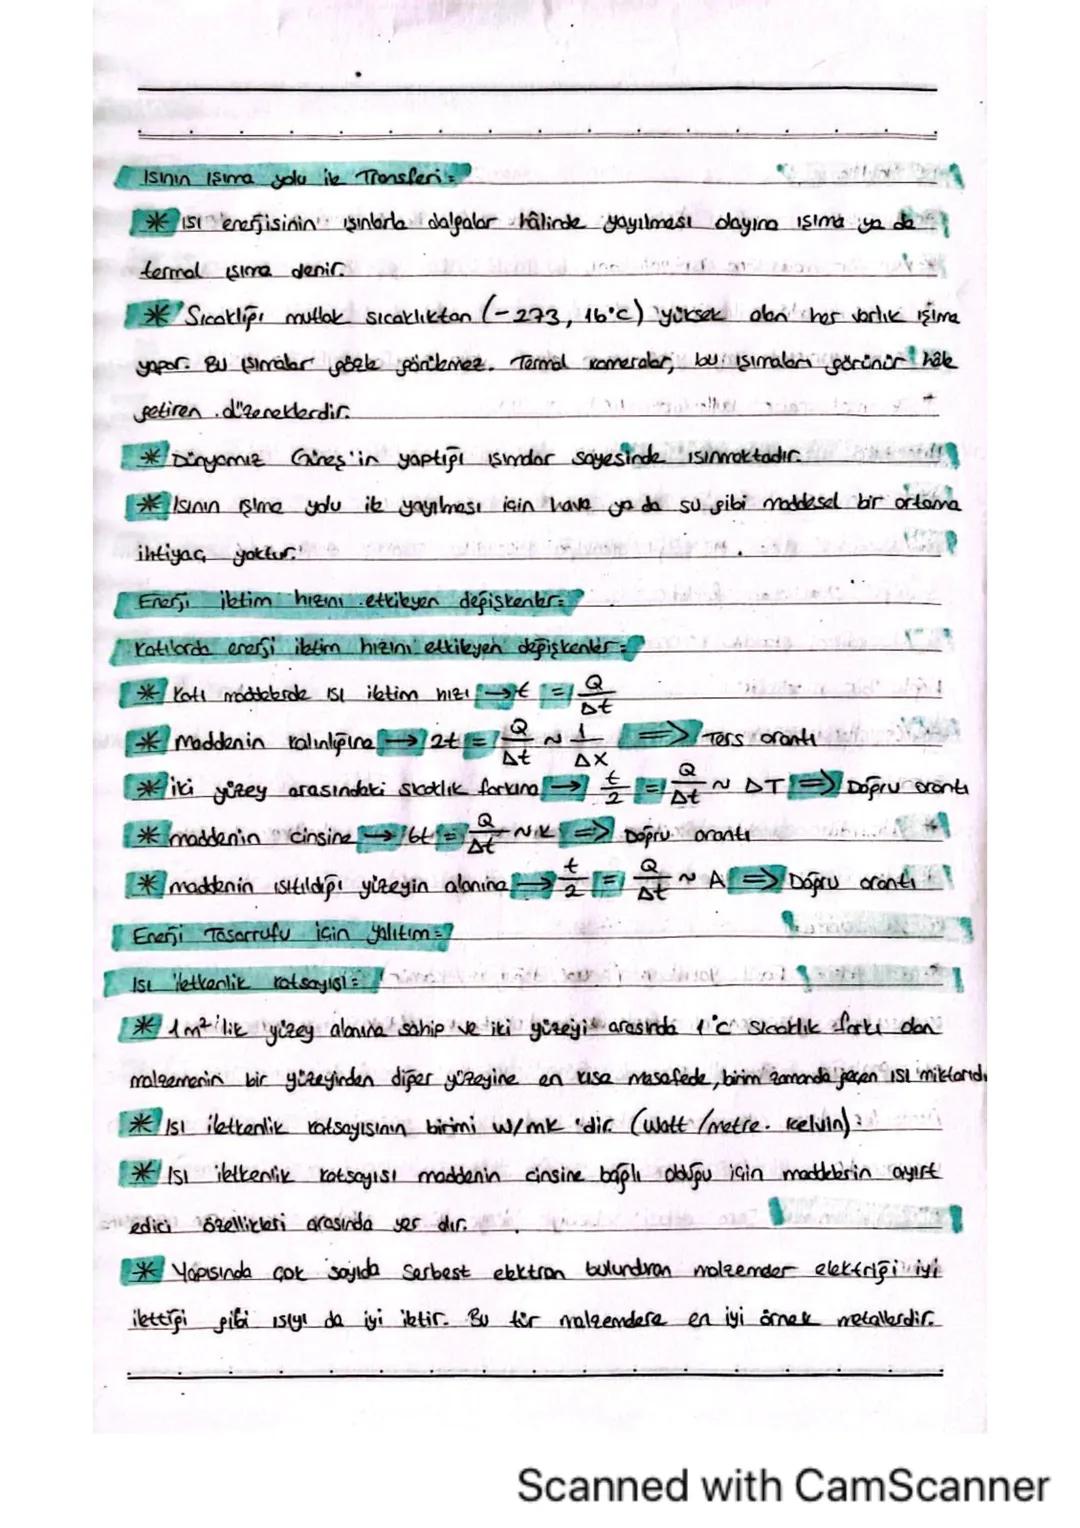 Isının Işıma yolu ile Transferi:
* ısı enerjisinin ışınlarla dalgalar hâlinde yayılması olayına ışıma ya da
termal ışıma denir.
* Sıcaklığı mutlak sıcaklıktan (-273, 16°C) yüksek olan her varlık ışıma
yapar. Bu ışımalar gözle görülemez. Termal kameralar, bu ışımaları görünür hâle
getiren düzeneklerdir.
* Dünyamız Güneş'in yaptığı ışımalar sayesinde ısınmaktadır.
* Isının ışıma yolu ile yayılması için hava ya da su gibi maddesel bir ortama
ihtiyaç yoktur.
Enerji iletim hızını etkileyen değişkenler:
Katılarda enerji iletim hızını etkileyen değişkenler:
* Katı maddelerde ısı iletim hızı → t = Q/Δt
* Maddenin kalınlığına → 2t = Q/Δt ~ 1/ΔX ⇒ Ters orantı
* iki yüzey arasındaki sıcaklık farkına → t/2 = Q/Δt ~ ΔT ⇒ Doğru orantı
* maddenin cinsine → 6t = Q/Δt ~ K ⇒ Doğru orantı
* maddenin ısıtıldığı yüzeyin alanına → t/2 = Q/Δt ~ A ⇒ Doğru orantı
Enerji Tasarrufu için Yalıtım:
Isı iletkenlik katsayısı:
* 1m²'lik yüzey alanına sahip ve iki yüzeyi arasında 1°C sıcaklık farkı olan
malzemenin bir yüzeyinden diğer yüzeyine en kısa mesafede, birim zamanda geçen ısı miktarıdı
* Isı iletkenlik katsayısının birimi W/mK 'dir. (Watt /metre. Kelvin)
* Isı iletkenlik katsayısı maddenin cinsine bağlı olduğu için maddelerin ayırt
edici özellikleri arasında yer alır.
* Yapısında çok sayıda Serbest elektron bulunduran malzemeler elektriği iyi
ilettiği gibi ısıyı da iyi iletir. Bu tür malzemelere en iyi örnek metallerdir.
Scanned with CamScanner